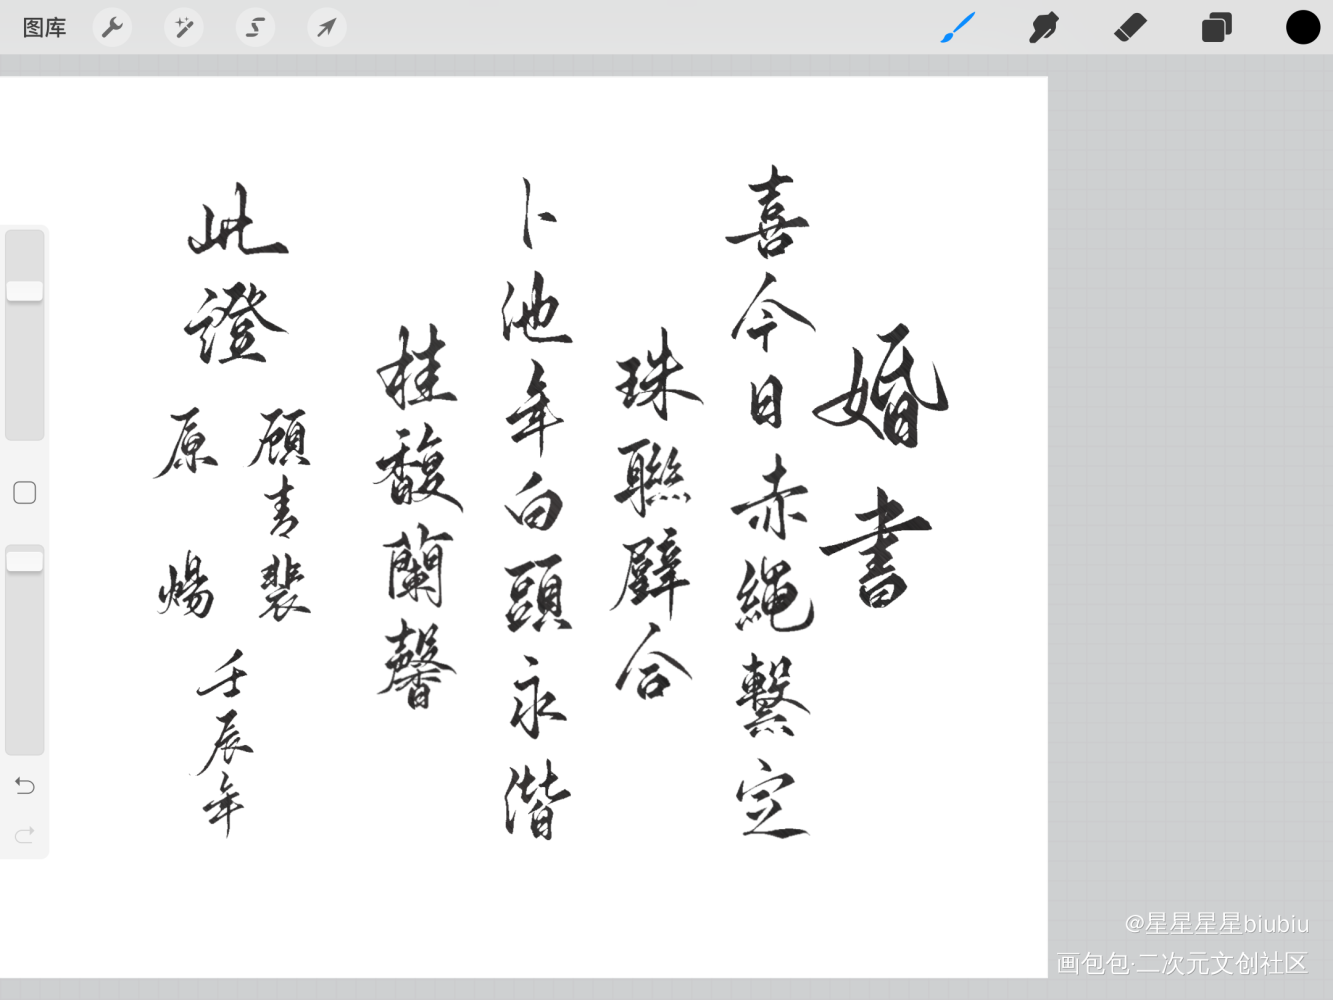 图库
婚書
喜今日赤繩繫定
珠聯璧合
卜他年白頭永偕
桂馥蘭馨
此證
顾青裴
原煬
壬辰年
@星星星星biubiu
画包包·二次元文创社区